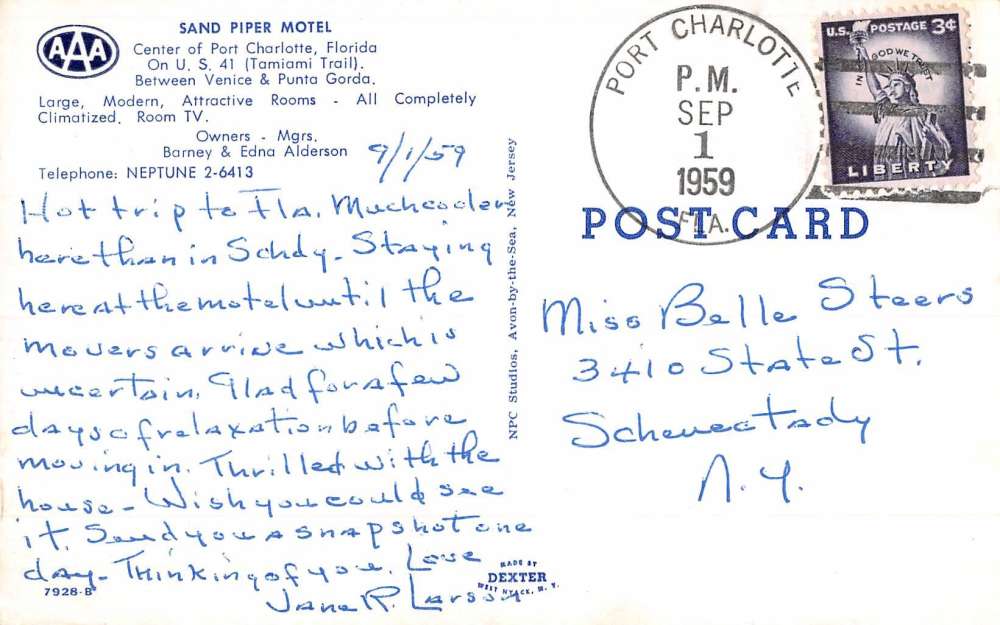 AAA
SAND PIPER MOTEL
Center of Port Charlotte, Florida
On U. S. 41 (Tamiami Trail).
Between Venice & Punta Gorda.
Large, Modern, Attractive Rooms - All Completely
Climatized. Room TV.
Owners - Mgrs.
Barney & Edna Alderson
Telephone: NEPTUNE 2-6413
9/1/59
Hot trip to Fla. Much cooler
here than in Schdy. Staying
here at the motel until the
movers arrive which is
uncertain. Glad for a few
days of relaxation before
moving in. Thrilled with the
house - Wish you could see
it. Send you a snapshot one
day - Thinking of you. Love
Jane R. Larson
7928-B
NPC Studios, Avon-by-the-Sea, New Jersey
MADE BY
DEXTER
WEST NYACK, N. Y.
PORT CHARLOTTE
P.M.
SEP
1
1959
FLA.
U.S. POSTAGE 3¢
IN GOD WE TRUST
LIBERTY
POST CARD
Miss Belle Steers
3410 State St.
Schenectady
N. Y.